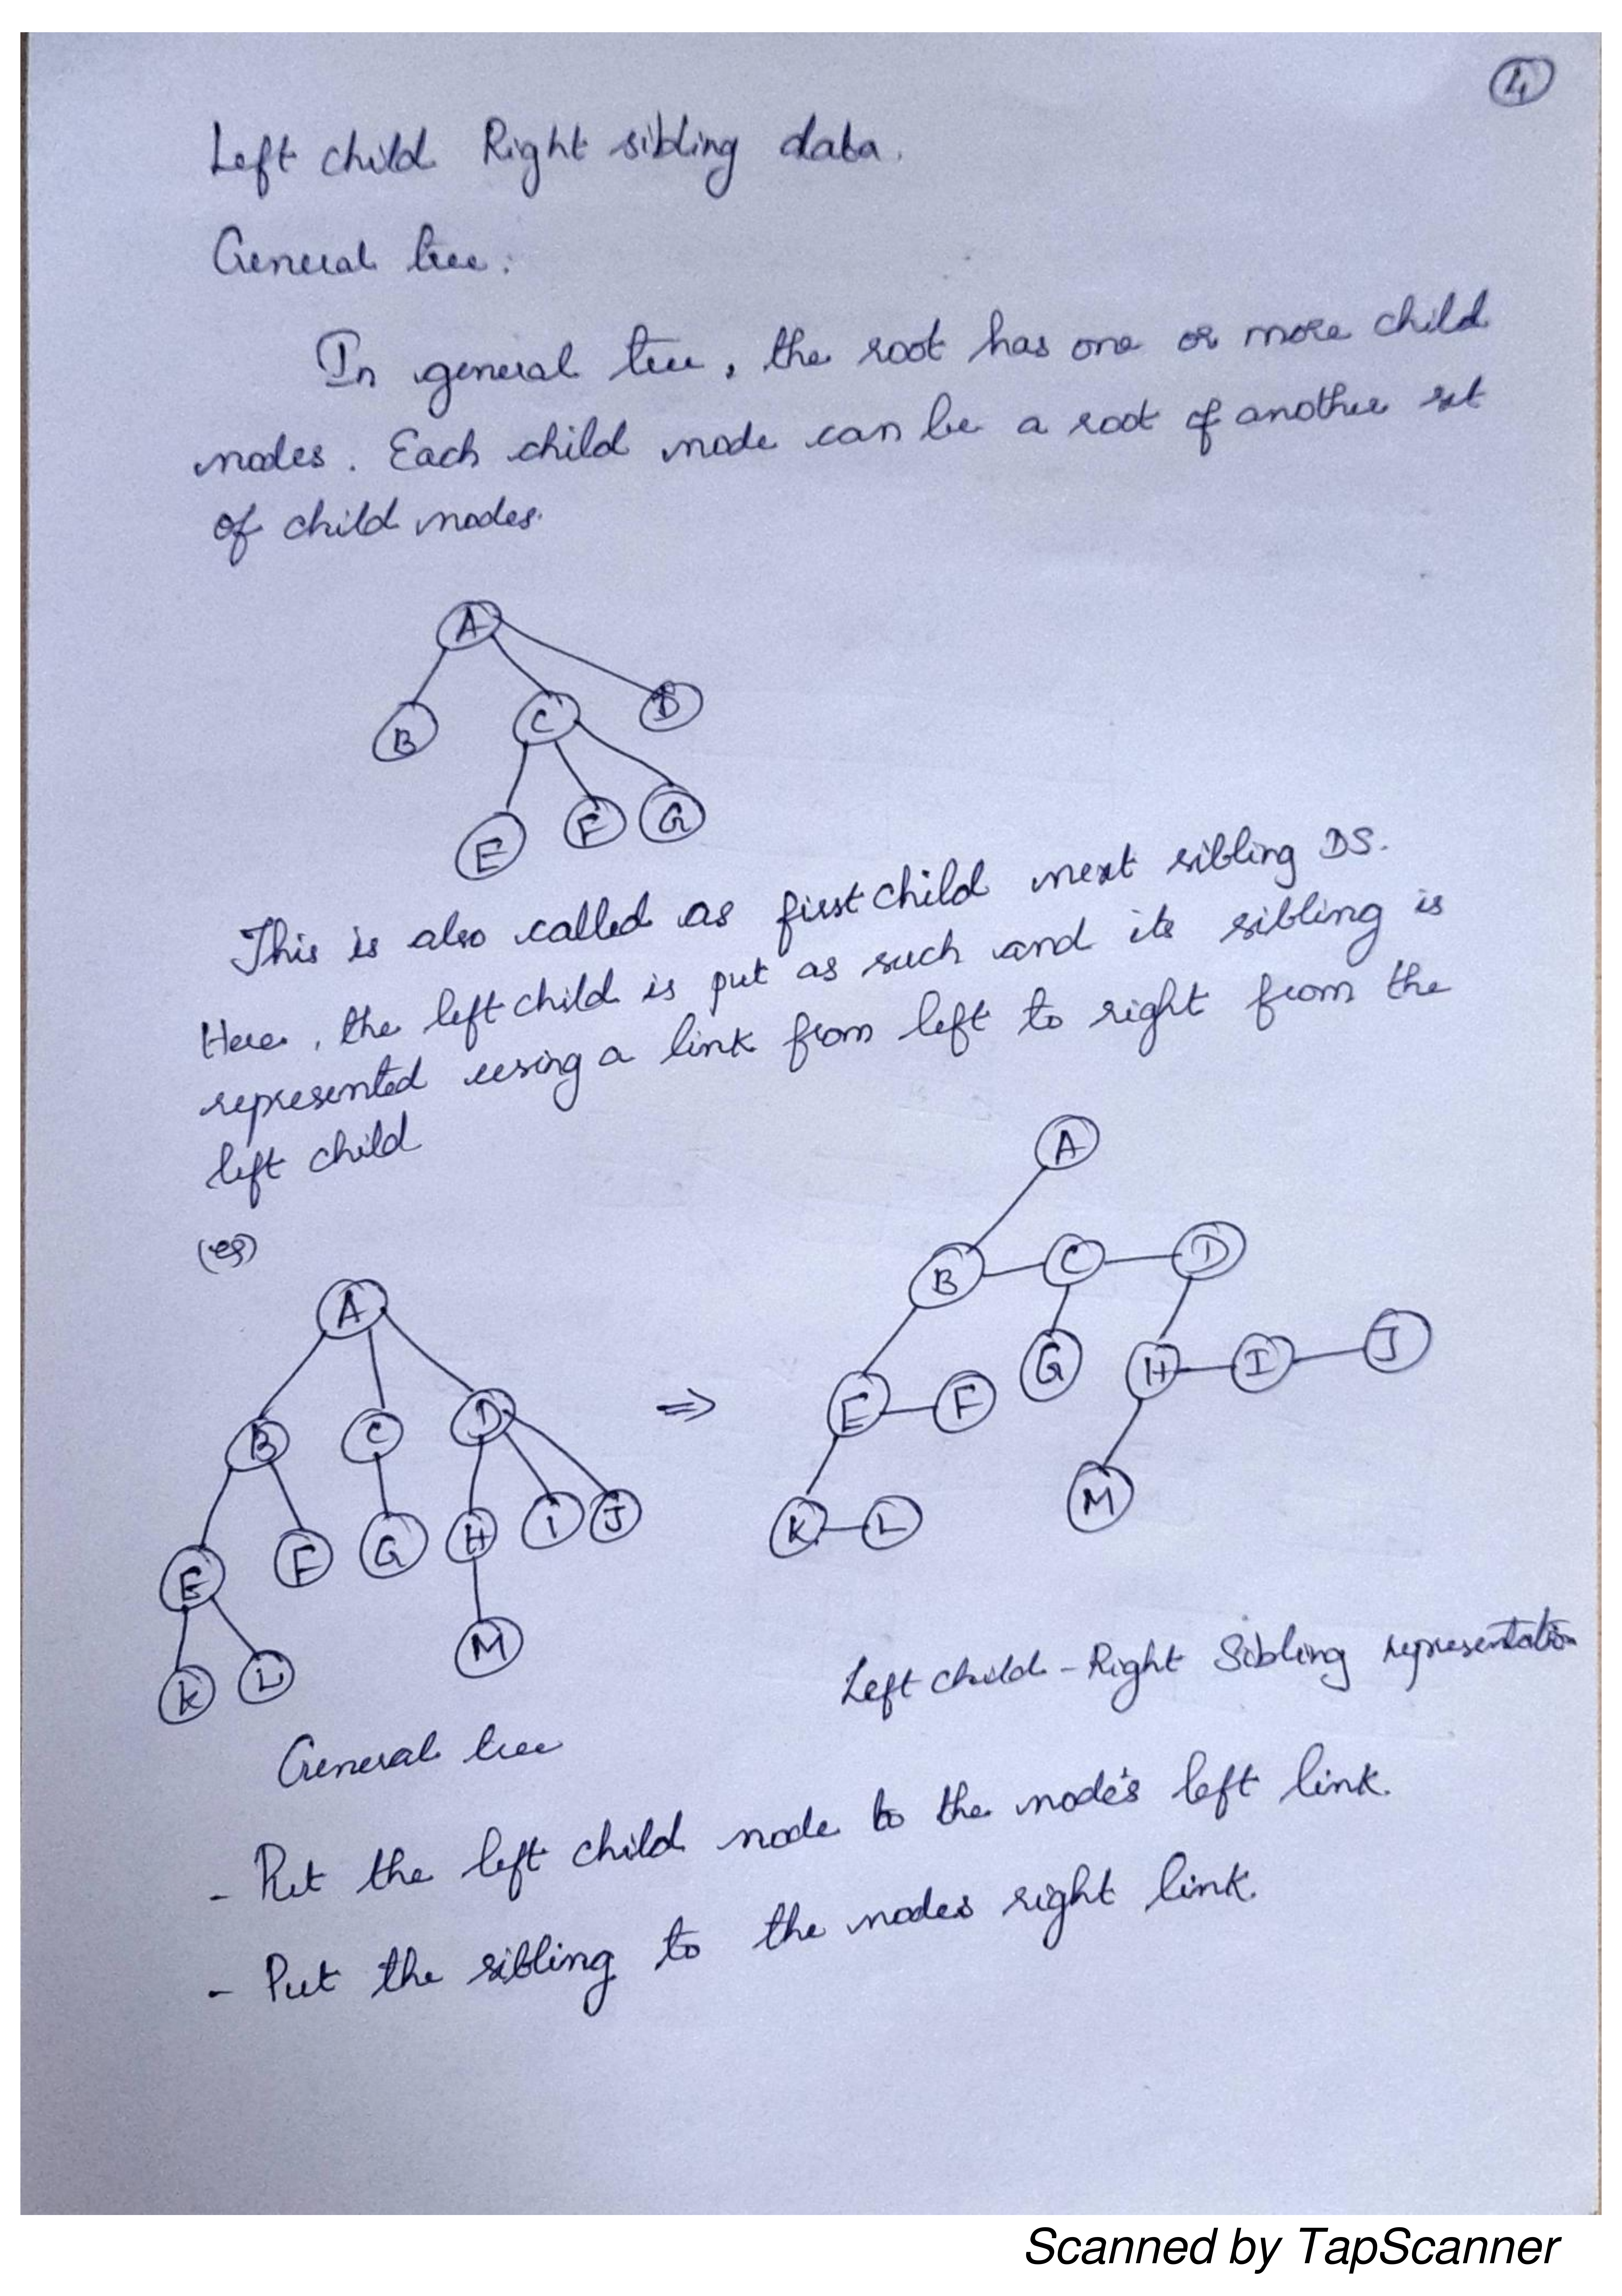 4
Left child Right sibling data.
General tree:
In general tree, the root has one or more child
nodes. Each child node can be a root of another set
of child nodes.
A
B C D
E F G
This is also called as first child next sibling DS.
Here, the left child is put as such and its sibling is
represented using a link from left to right from the
left child
(eg)
A
B C D
E F G H I J
K L M
General tree
⇒
A
B C D
E F G H I J
K L M
Left child - Right Sibling representation
- Put the left child node to the node's left link.
- Put the sibling to the nodes right link.
Scanned by TapScanner